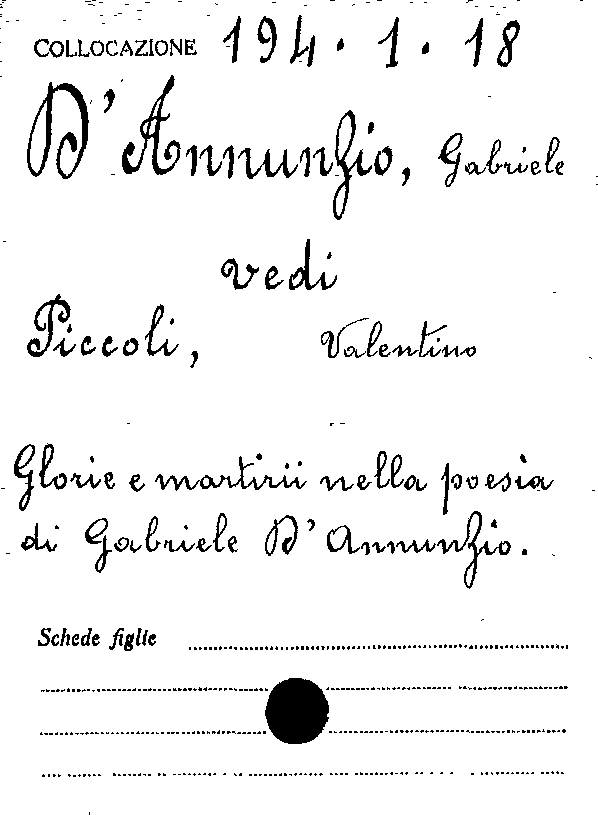 COLLOCAZIONE 194.1.18
D'Annunzio, Gabriele
vedi
Piccoli, Valentino
Glorie e martirii nella poesia
di Gabriele D'Annunzio.
Schede figlie